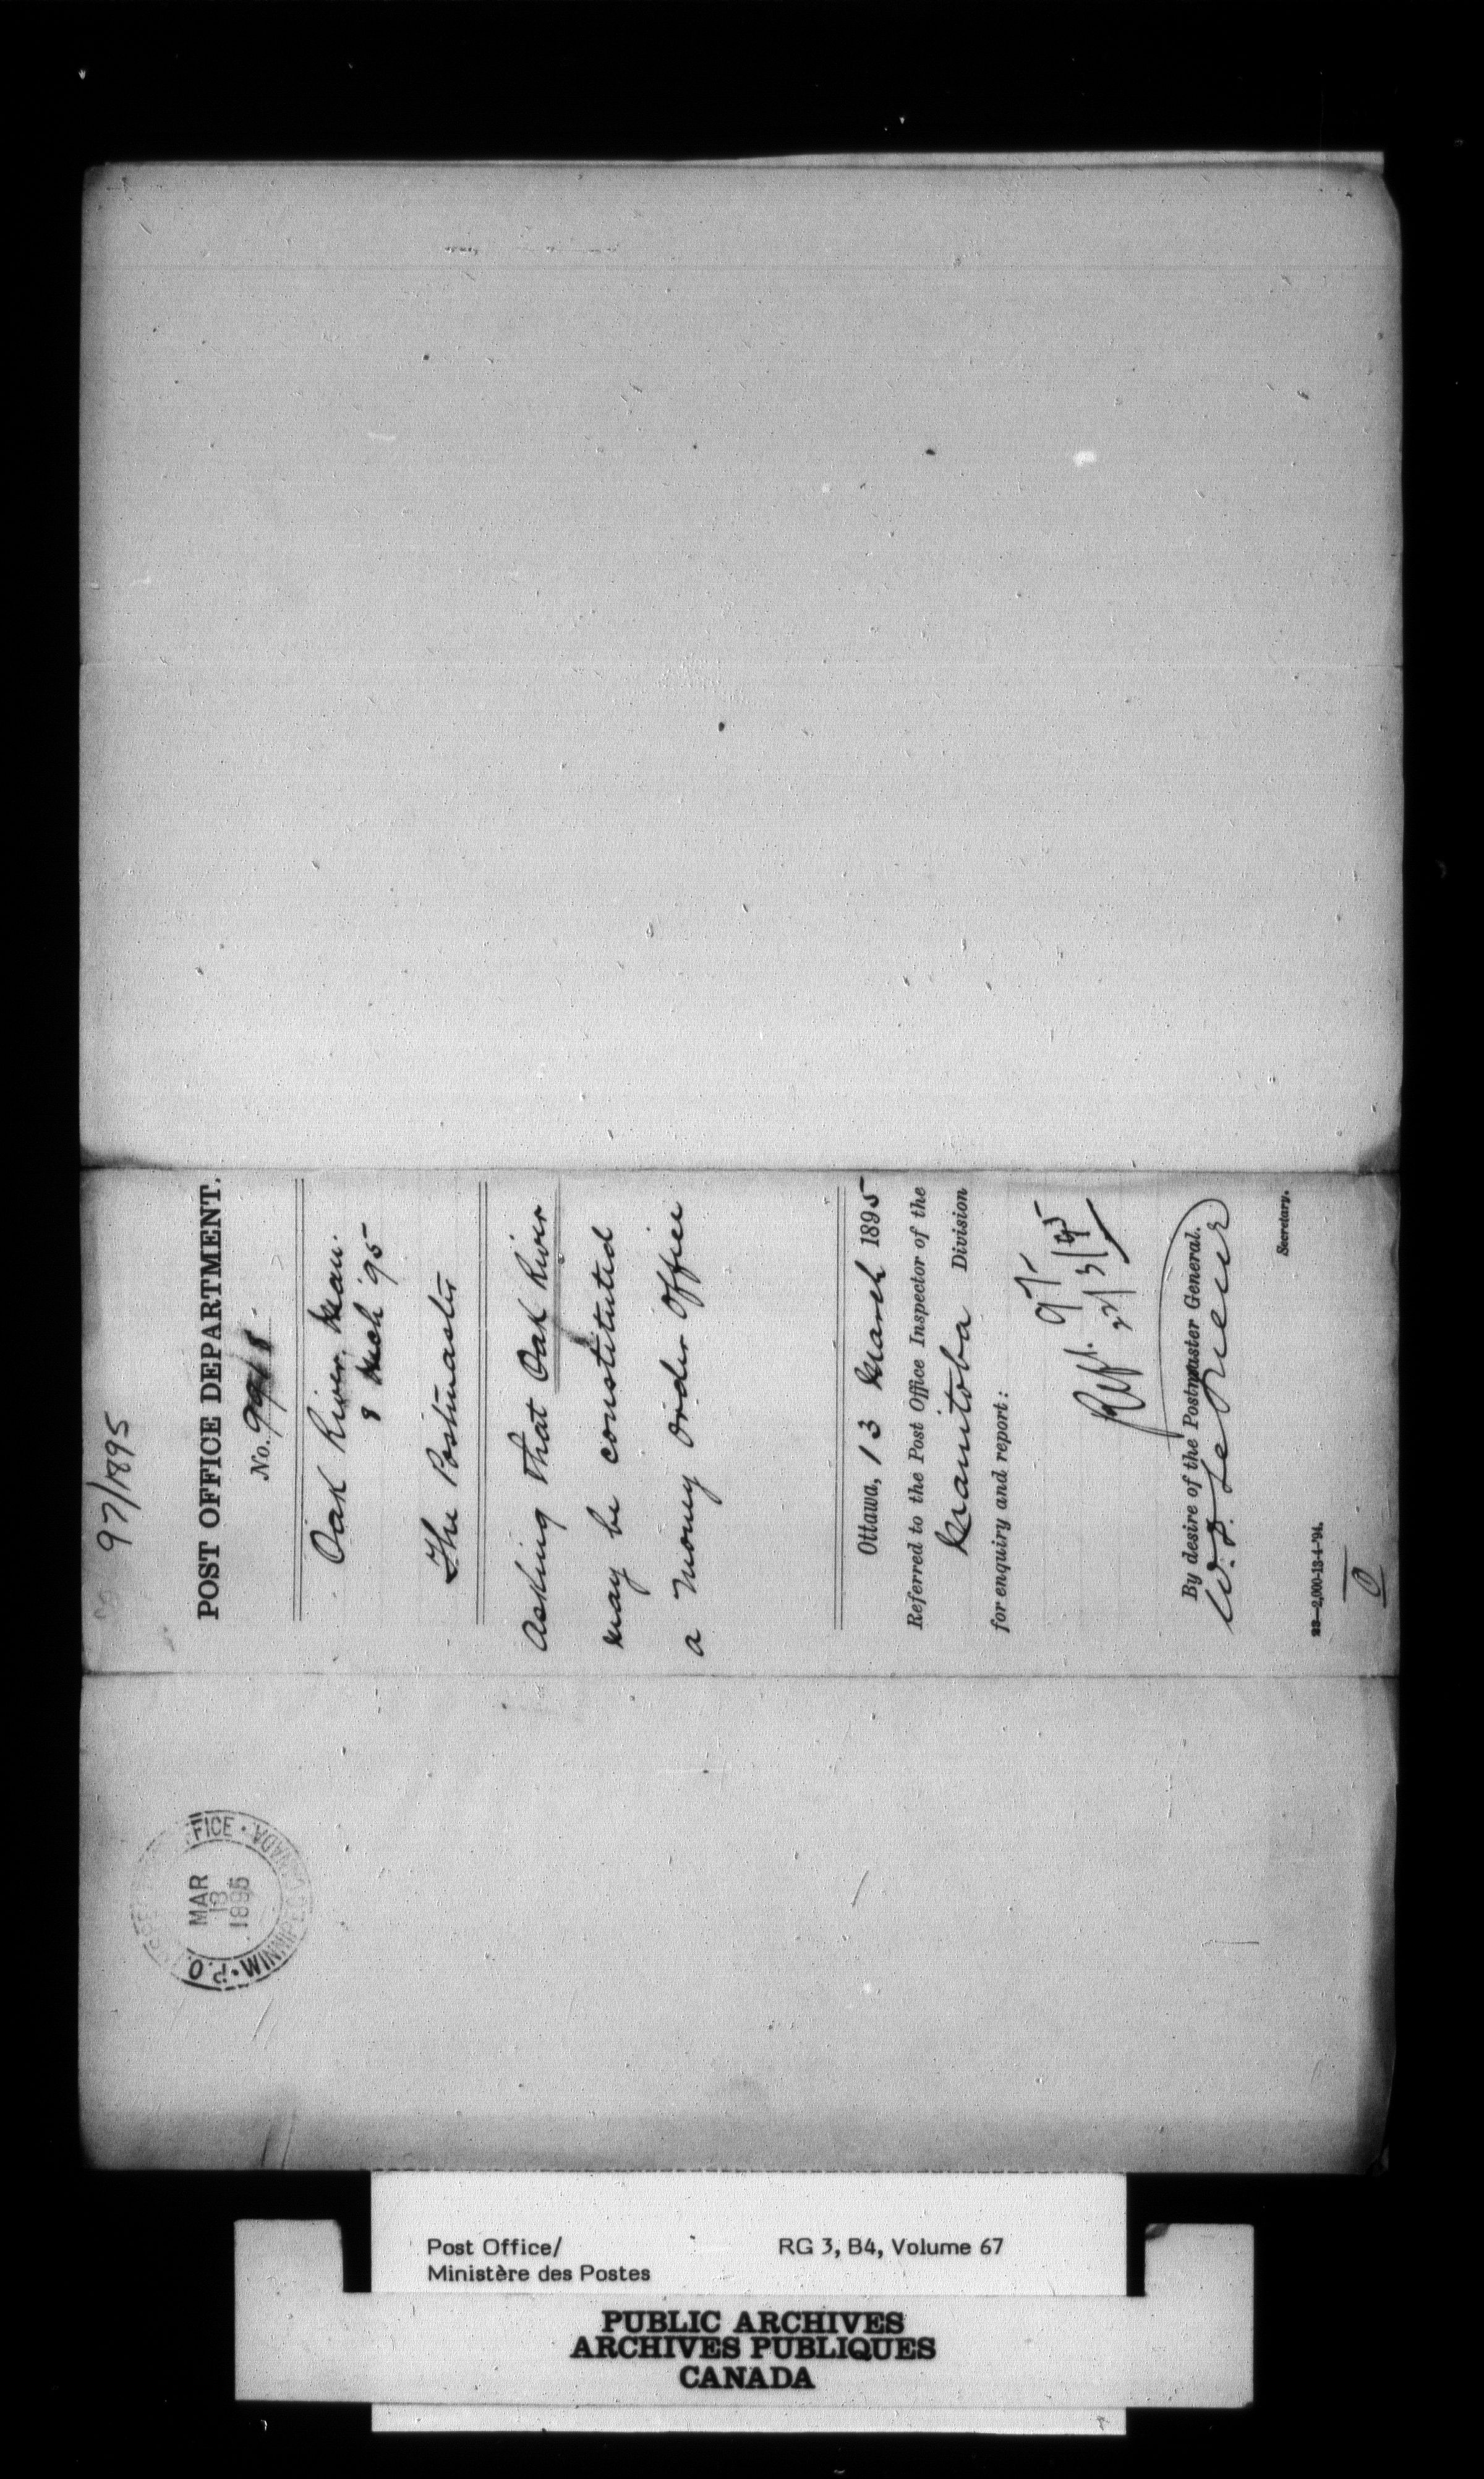 97/1895
POST OFFICE DEPARTMENT.
No.
Oak River, Man.
8 Mch '95
The Postmaster
Asking that Oak River
may be constituted
a Money Order Office
Ottawa, 13 March 1895
Referred to the Post Office Inspector of the
Manitoba Division
for enquiry and report:
Rept. 97
22/3/95
By desire of the Postmaster General.
Secretary.
23—2,000-13-4-'94.
FICE • WINNIPEG CANADA
P.O.
MAR
18
1895
Post Office/
Ministère des Postes
RG 3, B4, Volume 67
PUBLIC ARCHIVES
ARCHIVES PUBLIQUES
CANADA